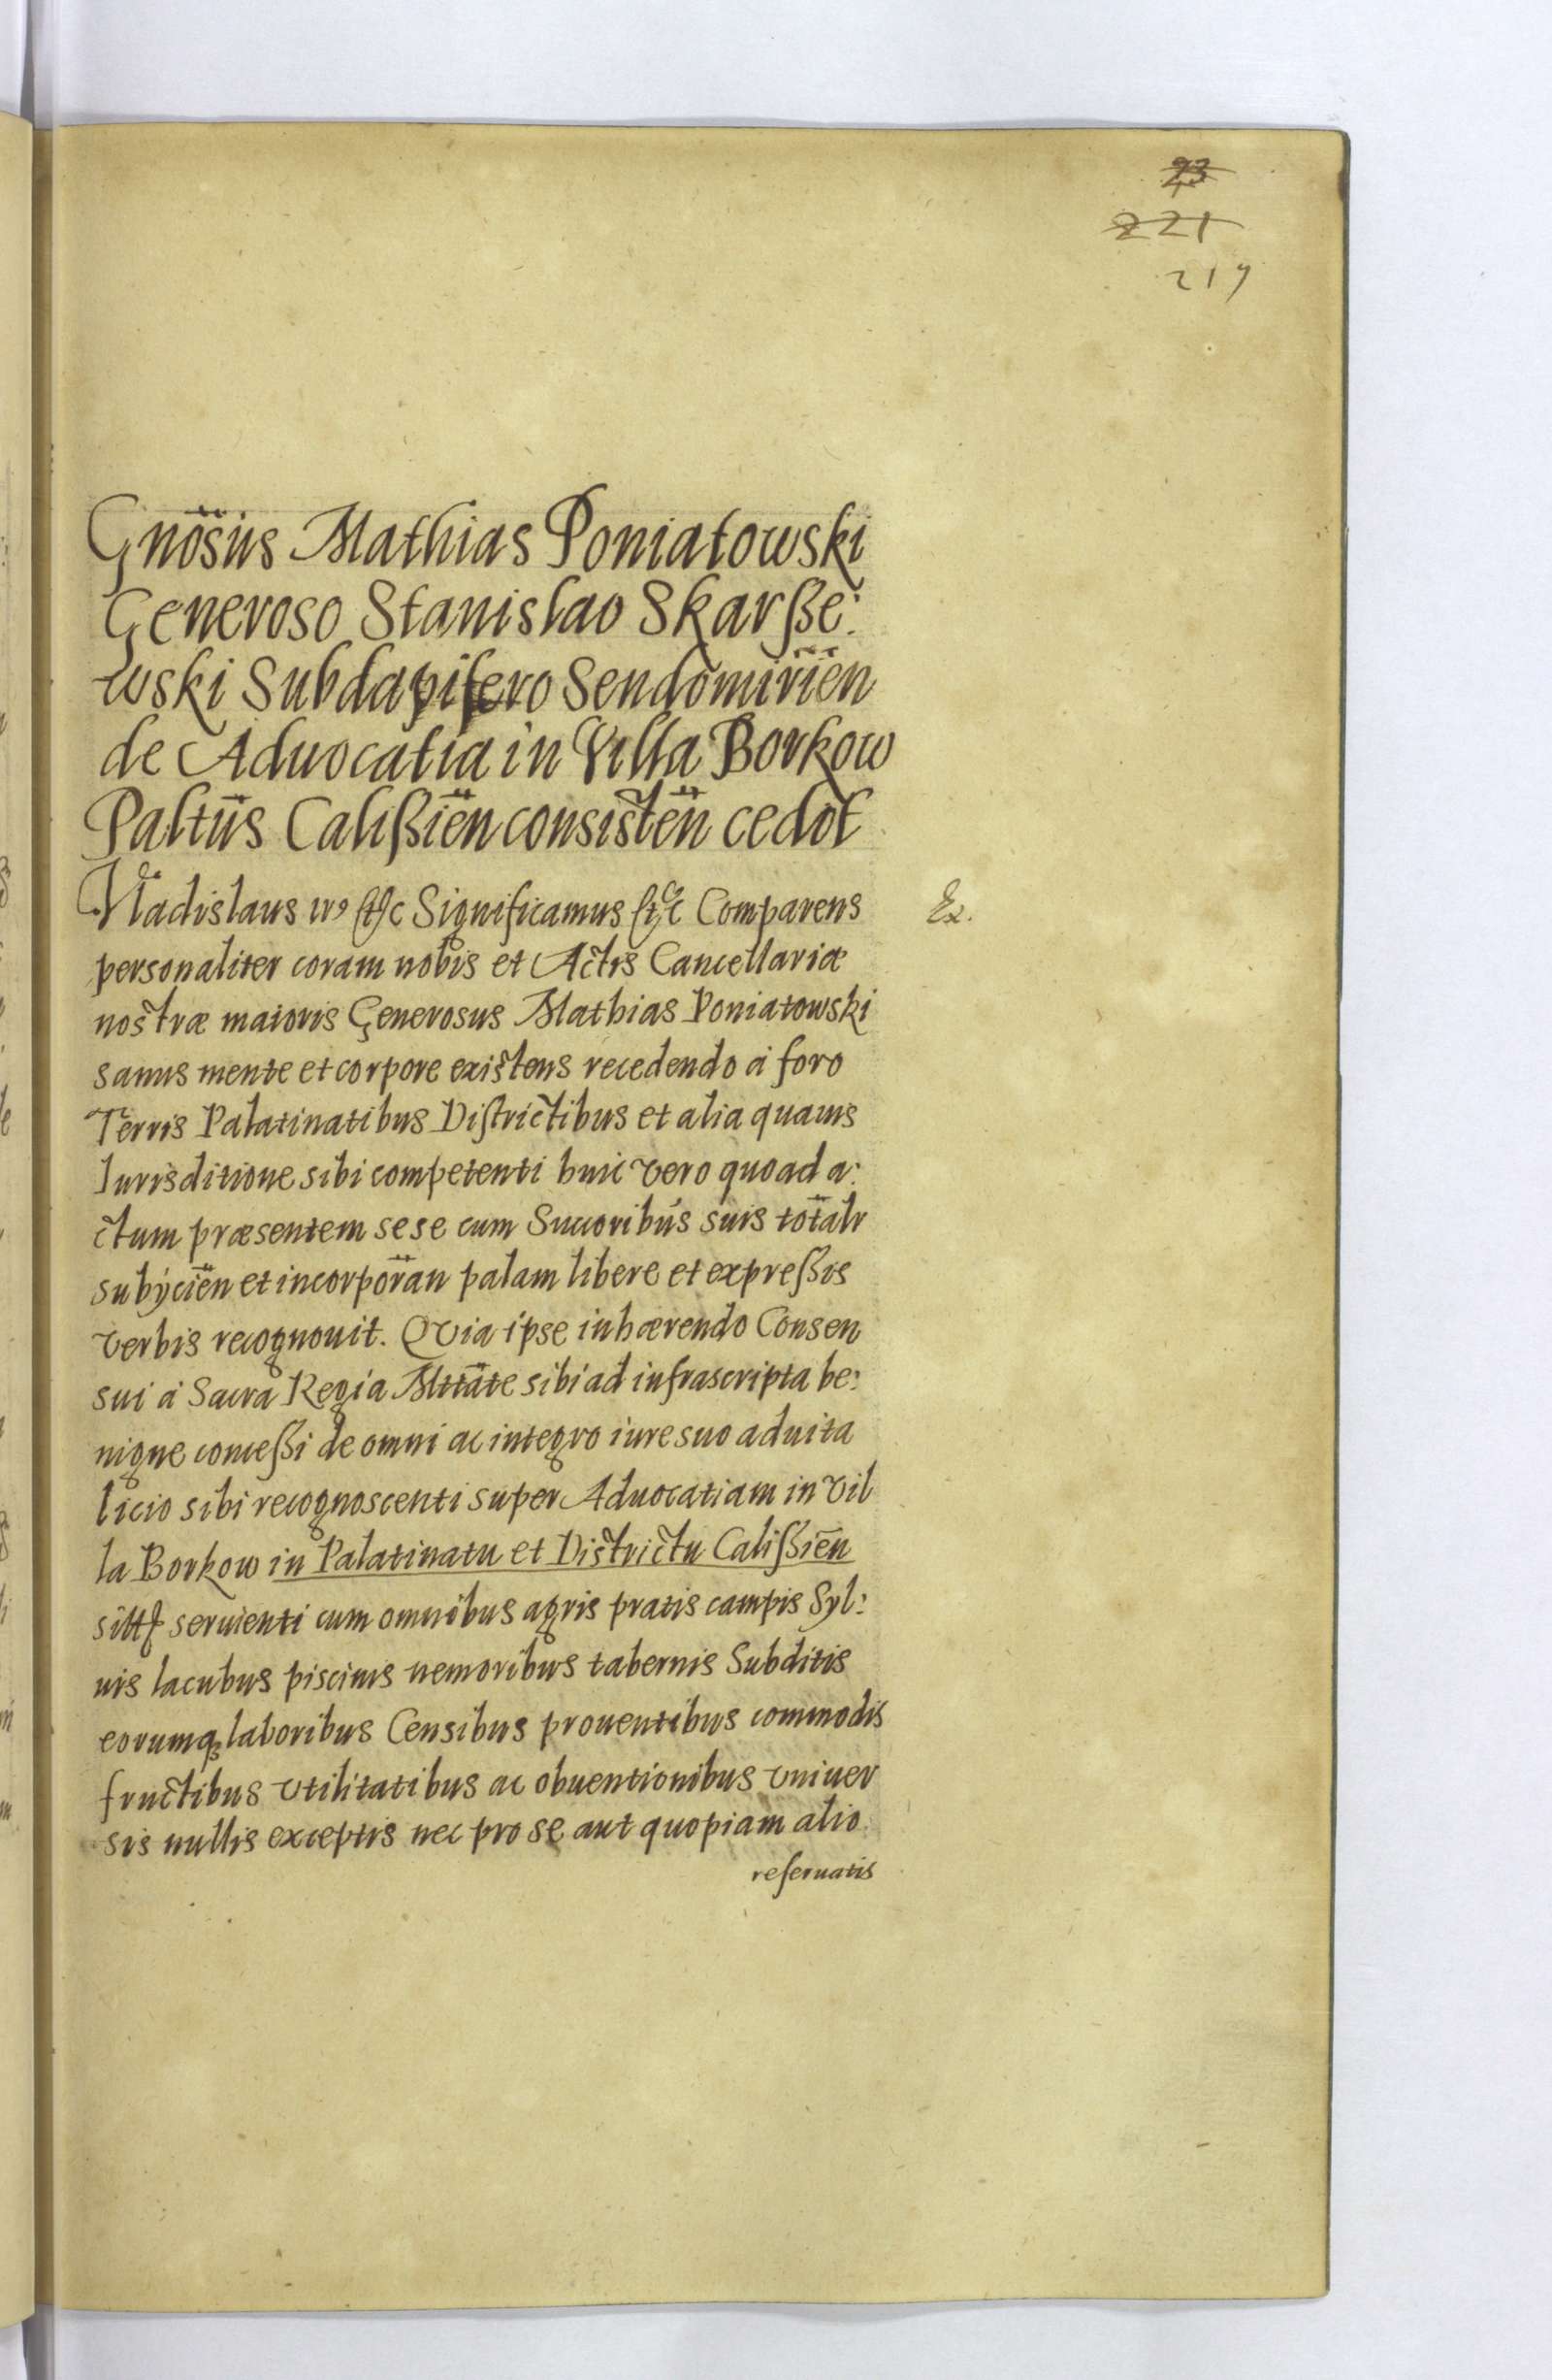 23
221
217
Gnosus Mathias Poniatowski
Generoso Stanislao Skarße:
wski Subdapifero Sendomirien
de Aduocatia in Villa Borkow
Paltus Calißien consisten cedot
Vladislaus &c Significamus &c Comparens
Ex.
personaliter coram nobis et Actis Cancellariæ
nostræ maioris Generosus Mathias Poniatowski
sanus mente et corpore existens recedendo à foro
Terris Palatinatibus Districtibus et alia quauis
Iurisditione sibi competenti huic vero quoad a:
ctum præsentem sese cum Succoribus suis totalr
subÿcien et incorporan palam libere et expreßis
verbis recognouit. Qvia ipse inhærendo Consen
sui à Sacra Regia Mttate sibi ad infrascripta be:
nigne conceßi de omni ac integro iure suo aduita
licio sibi recognoscenti super Aduocatiam in vil
la Borkow in Palatinatu et Districtu Calißien
seruienti cum omnibus agris pratis campis Syl:
uis lacubus piscinis nemoribus tabernis Subditis
eorumq laboribus Censibus prouentibus commodis
fructibus vtilitatibus ac obuentionibus vniuer
sis nullis exceptis nec pro se aut quopiam alio
reseruatis